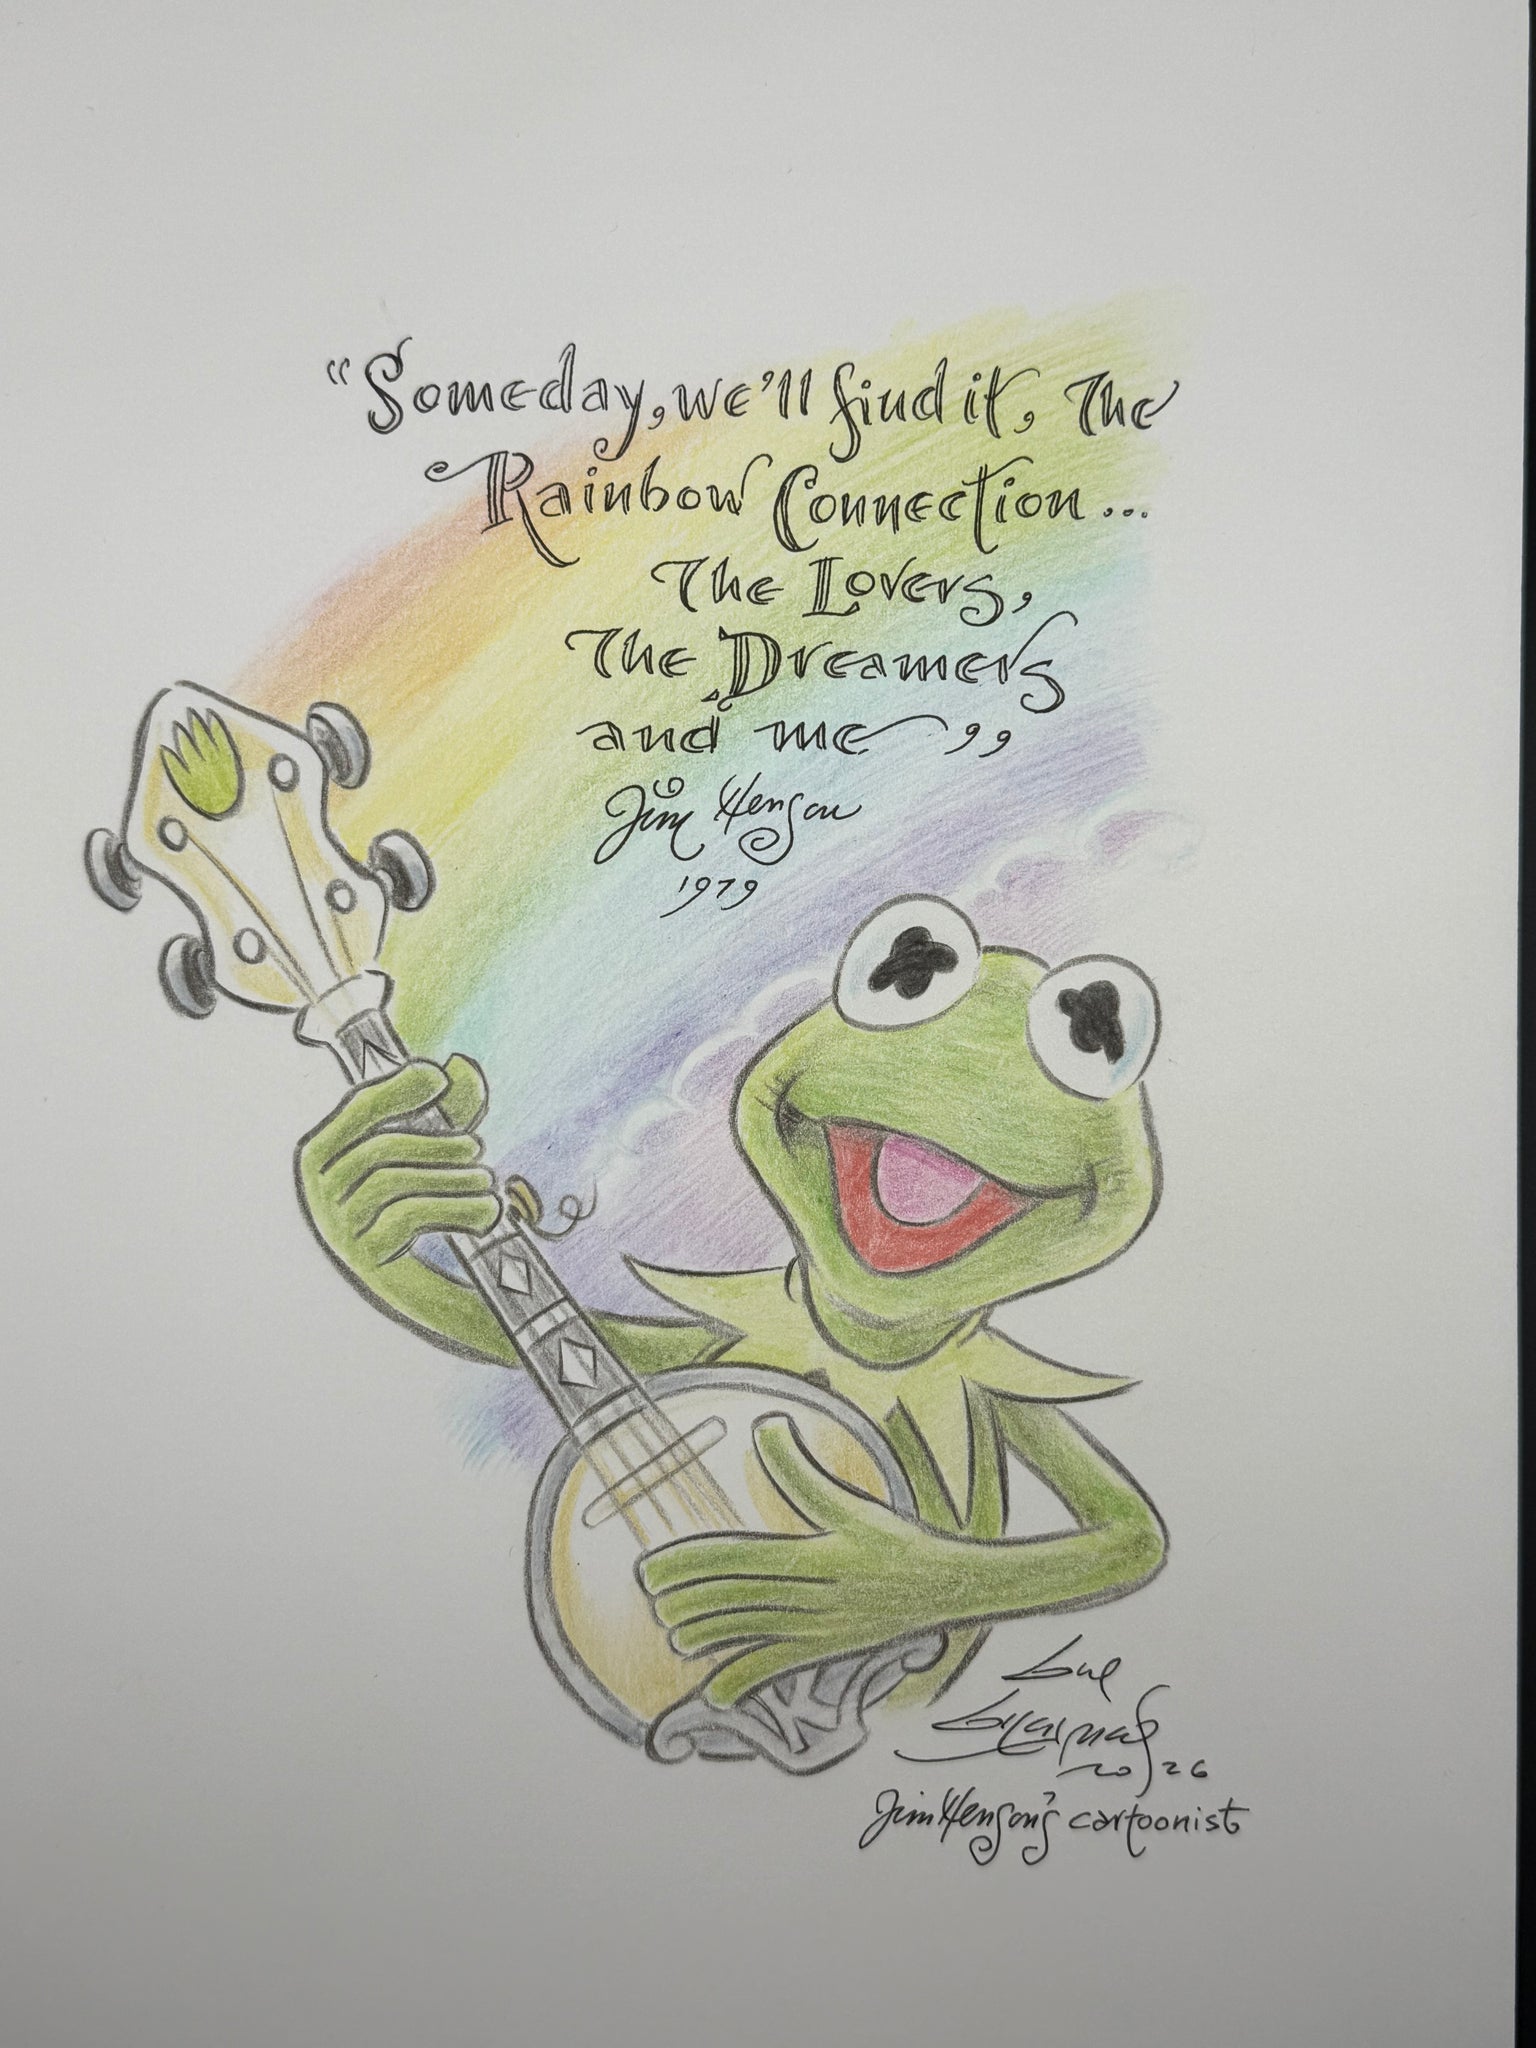 “Someday, we'll find it, The
Rainbow Connection...
The Lovers,
The Dreamers
and me”
Jim Henson
1979
K
Guy
2026
Jim Henson's cartoonist